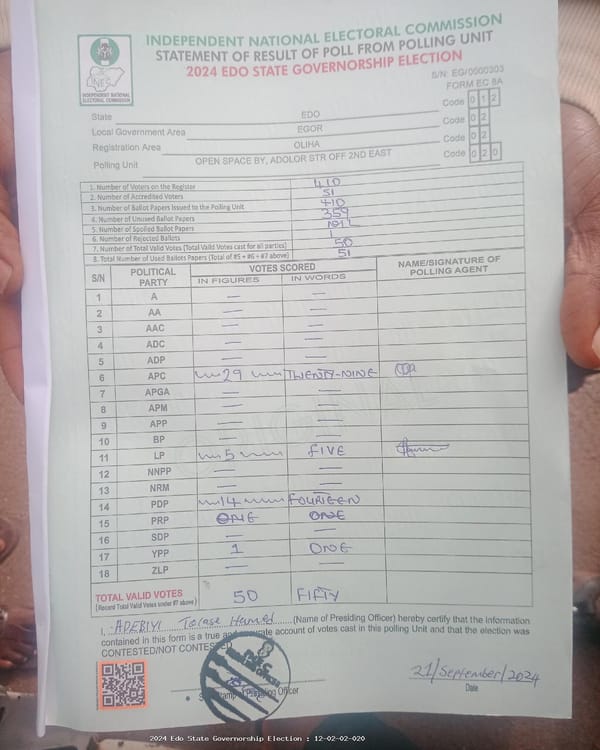 INDEPENDENT NATIONAL ELECTORAL COMMISSION
STATEMENT OF RESULT OF POLL FROM POLLING UNIT
2024 EDO STATE GOVERNORSHIP ELECTION
INEC
INDEPENDENT NATIONAL ELECTORAL COMMISSION
S/N: EG/0000303
FORM EC 8A
State EDO Code 0 1 2
Local Government Area EGOR Code 0 2
Registration Area OLIHA Code 0 2
Polling Unit OPEN SPACE BY, ADOLOR STR OFF 2ND EAST Code 0 2 0
1. Number of Voters on the Register 410
2. Number of Accredited Voters 51
3. Number of Ballot Papers Issued to the Polling Unit 410
4. Number of Unused Ballot Papers 359
5. Number of Spoiled Ballot Papers NIL
6. Number of Rejected Ballots 1
7. Number of Total Valid Votes (Total Valid Votes cast for all parties) 50
8. Total Number of Used Ballots Papers (Total of #5 + #6 + #7 above) 51
S/N POLITICAL PARTY VOTES SCORED NAME/SIGNATURE OF POLLING AGENT
IN FIGURES IN WORDS
1 A — —
2 AA — —
3 AAC — —
4 ADC — —
5 ADP — —
6 APC 29 TWENTY-NINE
7 APGA — —
8 APM — —
9 APP — —
10 BP — —
11 LP 5 FIVE
12 NNPP — —
13 NRM — —
14 PDP 14 FOURTEEN
15 PRP ONE ONE
16 SDP — —
17 YPP 1 ONE
18 ZLP — —
TOTAL VALID VOTES 50 FIFTY
(Record Total Valid Votes under #7 above)
I, ADEBIYI Hamed (Name of Presiding Officer) hereby certify that the information
contained in this form is a true and accurate account of votes cast in this polling Unit and that the election was
CONTESTED/NOT CONTESTED
INEC
Presiding Officer
21/September/2024
Date
2024 Edo State Governorship Election : 12-02-02-020